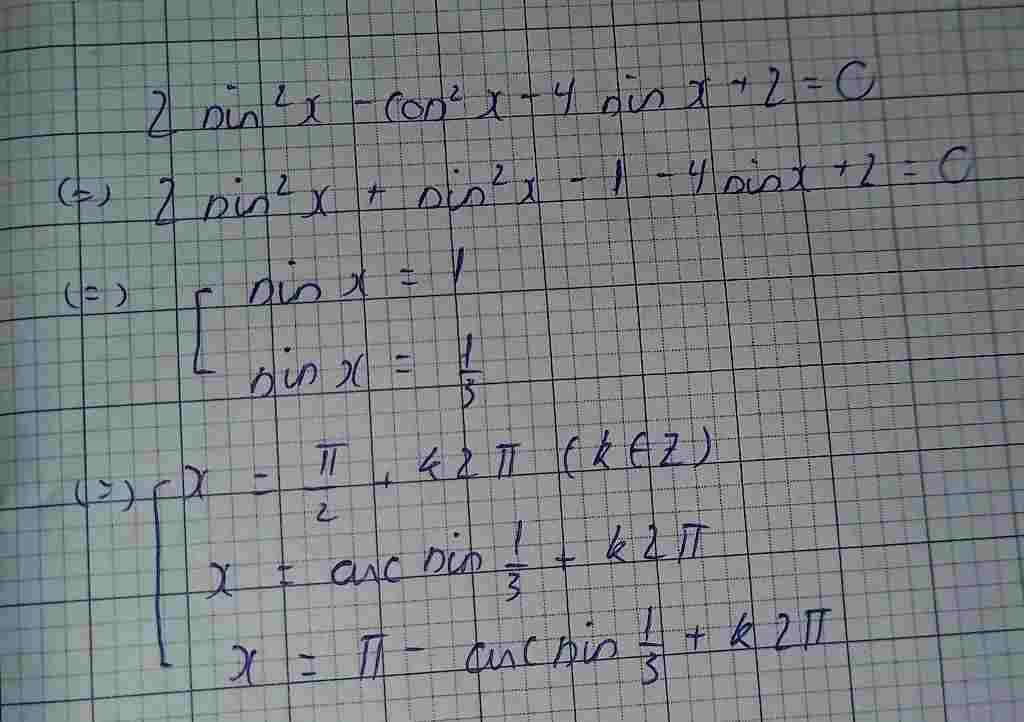 2 sin²x - cos²x - 4 sin x + 2 = 0
(=) 2 sin²x + sin²x - 1 - 4 sin x + 2 = 0
(=) [ sin x = 1
sin x = 1/3
(=) [ x = π/2 + k2π (k ∈ Z)
x = arc sin 1/3 + k2π
x = π - arc sin 1/3 + k2π